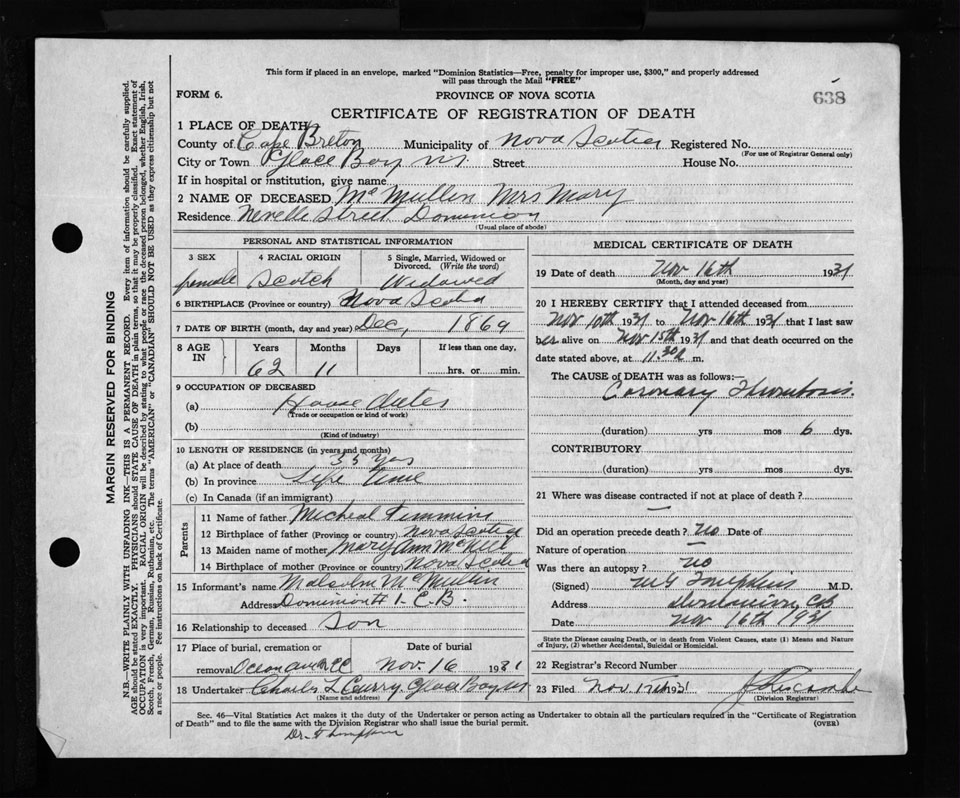 This form if placed in an envelope, marked "Dominion Statistics—Free, penalty for improper use, $300," and properly addressed
will pass through the Mail "FREE"
FORM 6.
PROVINCE OF NOVA SCOTIA
638
CERTIFICATE OF REGISTRATION OF DEATH
1 PLACE OF DEATH
County of Cape Breton Municipality of Nova Scotia Registered No.
(For use of Registrar General only)
City or Town Glace Bay NS Street House No.
If in hospital or institution, give name
2 NAME OF DECEASED McMullin Mrs Mary
Residence Street Dominion
(Usual place of abode)
MARGIN RESERVED FOR BINDING
N.B.—WRITE PLAINLY WITH UNFADING INK—THIS IS A PERMANENT RECORD. Every item of information should be carefully supplied.
AGE should be stated EXACTLY. PHYSICIANS should STATE CAUSE OF DEATH in plain terms, so that it may be properly classified. Exact statement of
OCCUPATION is very important. RACIAL ORIGIN will be described by stating to what people or race the deceased person belonged, whether English, Irish,
Scotch, French, German, Russian, Ruthenian, etc. The terms "AMERICAN" or "CANADIAN" SHOULD NOT BE USED as they express citizenship but not
a race or people. See instructions on back of Certificate.
PERSONAL AND STATISTICAL INFORMATION
3 SEX
female
4 RACIAL ORIGIN
Scotch
5 Single, Married, Widowed or
Divorced. (Write the word)
Widowed
6 BIRTHPLACE (Province or country) Nova Scotia
7 DATE OF BIRTH (month, day and year) Dec, 1869
8 AGE IN
Years
62
Months
11
Days
If less than one day,
hrs. or min.
9 OCCUPATION OF DECEASED
(a)
(Trade or occupation or kind of work)
(b)
(Kind of industry)
10 LENGTH OF RESIDENCE (in years and months)
(a) At place of death 35 yrs
(b) In province Life Time
(c) In Canada (if an immigrant)
Parents
11 Name of father Micheal Timmins
12 Birthplace of father (Province or country) Nova Scotia
13 Maiden name of mother Mary Ann McNeil
14 Birthplace of mother (Province or country) Nova Scotia
15 Informant's name Malcolm McMullin
Address Dominion # 1. C.B.
16 Relationship to deceased Son
17 Place of burial, cremation or
removal
Date of burial
Nov. 16 1931
18 Undertaker Charles L Curry. Glace Bay NS
(Name and address)
MEDICAL CERTIFICATE OF DEATH
19 Date of death Nov 16th 1931
(Month, day and year)
20 I HEREBY CERTIFY that I attended deceased from
Nov 10th 1931 to Nov 16th 1931 that I last saw
her alive on Nov 15th 1931 and that death occurred on the
date stated above, at 11.30 m.
The CAUSE OF DEATH was as follows:—
Coronary Thrombosis.
(duration) yrs mos 6 dys.
CONTRIBUTORY
(duration) yrs mos dys.
21 Where was disease contracted if not at place of death?
—
Did an operation precede death? No Date of
Nature of operation —
Was there an autopsy? No
(Signed) Tompkins M.D.
Address Dominion, CB
Date Nov 16th 1931
State the Disease causing Death, or in death from Violent Causes, state (1) Means and Nature
of Injury, (2) whether Accidental, Suicidal or Homicidal.
22 Registrar's Record Number
23 Filed Nov. 17th 1931
(Division Registrar)
Sec. 46—Vital Statistics Act makes it the duty of the Undertaker or person acting as Undertaker to obtain all the particulars required in the "Certificate of Registration
of Death" and to file the same with the Division Registrar who shall issue the burial permit. (OVER)
Dr. Thompkins